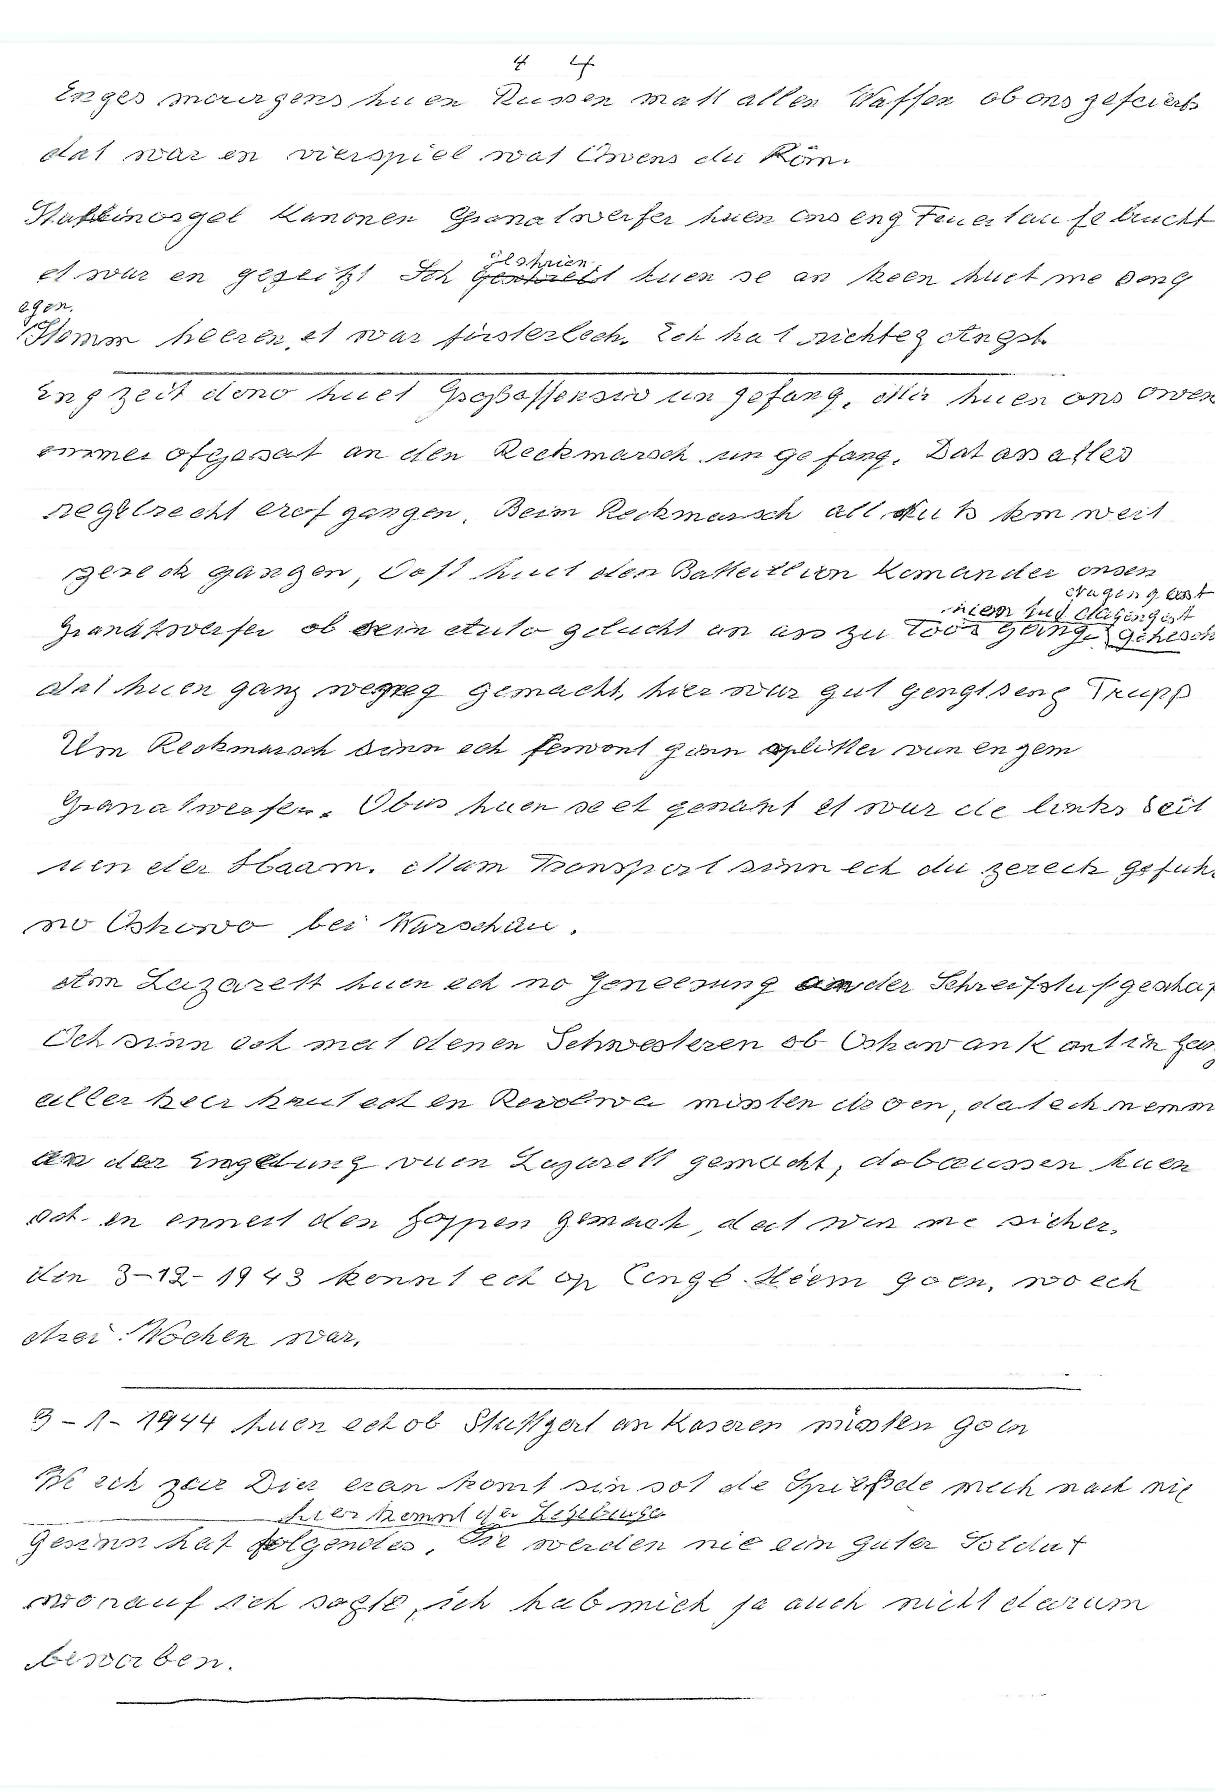 4 4
Enges mourgens huen Russen matt allen Waffen ob ons gefeiert
dat war en vierspiel wat Owens du Köm.
Stallinorgel Kanonen Granatwerfer huen ons eng Feuertaufe bruecht
et war en gezeitzt Ich geschrien huen se an keen huet me seng
egen.
Stemm heeren, et war fürsterlech. Ech hat richteg Angst.
Eng zeit dono huet Großoffensiv un gefang. Mir huen ons owen
emmer ofgesat an den Reckmarsch un gefang. Dat ass alles
regelrecht erof gangen. Beim Reckmarsch all km weit
zereck gangen, Ooft huet den Batteillion Komander onsen
Granatwerfer ob sein Auto gelucht an ass zu Toor geing.
dat huen ganz wegreg gemacht, hier war gut gengt seng Trupp
Um Reckmarsch sinn ech ferwont ginn splitter vun engem
Granatwerfer. Obus huen se et genant et war de links Seit
uen der Haam. Mam Transport sinn ech du zereck gefuh.
no Oskowo bei Warschau.
Am Lazarett huen ech no Geneesung an der Schreifstuf geschaf
Ech sinn och mat denen Schwesteren ob Oskow an Kantin gan
aller keer haut ech en Revolwer missten droen, dat ech nemm
an der Emgebung vuen Lazarett gemacht, dobaussen huen
ech en ennert den Joppen gemach, dat war me sicher.
den 3-12-1943 konnt ech op Cengé Heem goen, wo ech
drei Wochen war.
3-1-1944 huen ech ob Stuttgert an Kaseren missten goen
We ech zur Dier eran komt sin sot de Spieß de mech nach nie
hier kommt der Lezeburger
Gesinn hat folgendes, Sie werden nie ein guter Soldat
worauf ich sagte, ich hab mich ja auch nicht darum
beworben.